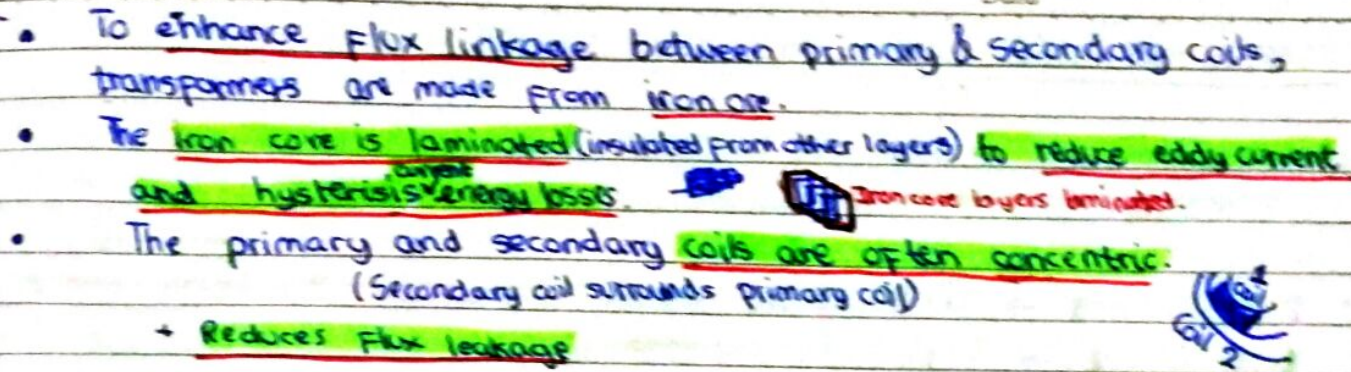 • To enhance flux linkage between primary & secondary coils,
transformers are made from iron ore.
• The iron core is laminated (insulated from other layers) to reduce eddy current
current
and hysterisis energy losses.
Iron core layers laminated.
• The primary and secondary coils are often concentric.
(Secondary coil surrounds primary coil)
+ Reduces flux leakage
Coil 1
Coil 2